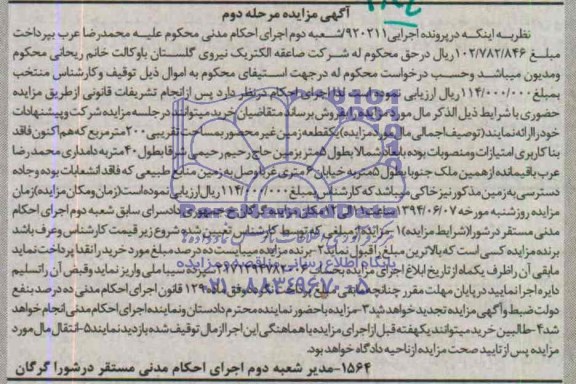 آگهی مزایده مرحله دوم
نظربه اینکه درپرونده اجرایی ۹۲۰۲۱۱/شعبه دوم اجرای احکام مدنی محکوم علیه محمدرضا عرب بپرداخت
مبلغ ۱۰۲/۷۸۲/۸۴۶ریال درحق محکوم له شرکت صاعقه الکتریک نیروی گلستان باوکالت خانم ریحانی محکوم
ومدیون میباشد وحسب درخواست محکوم له درجهت استیفای محکوم به اموال ذیل توقیف وکارشناس منتخب
بمبلغ ۱۱۴/۰۰۰/۰۰۰ریال ارزیابی نموده است لذا اجرای احکام درنظر دارد پس ازانجام تشریفات قانونی ازطریق مزایده
حضوری با شرایط ذیل الذکر مال مورد مزایده رابفروش برساند متقاضیان خرید میتوانند درجلسه مزایده شرکت وپیشنهادات
خودراارائه نمایند(توصیف اجمالی مال مورد مزایده)یکقطعه زمین غیر محصور بمساحت تقریبی ۲۰۰مترمربع که هم اکنون فاقد
بناکاربری امتیازات ومنصوبات بوده بابعاد شمالا بطول ۵متر بزمین حاج رحیم رحیمی شرقابطول ۴۰متربه دامداری محمدرضا
عرب باقیمانده ازهمین ملک جنوبا بطول ۵متربه خیابان ۶متری غربا وصل به زمین منابع طبیعی که فاقد انشعابات بوده وجاده
دسترسی به زمین مذکور نیز خاکی میباشد که کارشناس بمبلغ ۱۱۴/۰۰۰/۰۰۰ریال ارزیابی نموده است(زمان ومکان مزایده)زمان
مزایده روزشنبه مورخه ۱۳۹۴/۰۶/۰۷ ساعت ۱۱الی ۱۲مکان مزایده گرگان خ جمهوری دادسرای سابق شعبه دوم اجرای احکام
مدنی مستقر در شورا(شرایط مزایده)۱-مزایده ازمبلغی که توسط کارشناس تعیین شده شروع زیر قیمت کارشناس وعرف باشد
برنده مزایده کسی است که بالاترین مبلغ راقبول نماید۲-برنده مزایده میبایست ده درصد مبلغ مورد خرید رانقدا پرداخت نماید
مابقی آن راظرف یکماه از تاریخ ابلاغ اجرای مزایده بحساب سپرده شیبا ملی واریز نماید وقبض آن راتسلیم
دایره اجرا نمایید درپایان مهلت مقرر چنانچه مابقی مبلغ پرداخت نگردد وفق ماده ۱۲۹ قانون اجرای احکام مدنی ده درصد بنفع
دولت ضبط وآگهی مزایده تجدید خواهد شد۳-مزایده باحضور نماینده محترم دادستان ونماینده اجرای احکام مدنی انجام خواهد
شد۴-طالبین خرید میتوانند یکهفته قبل از اجرای مزایده با هماهنگی این اجرا از مال توقیف شده بازدید نمایند۵-انتقال مال مورد
مزایده پس از تایید صحت مزایده ازناحیه دادگاه خواهد بود.
۱۵۶۴-مدیر شعبه دوم اجرای احکام مدنی مستقر درشورا گرگان
پایگاه اطلاع رسانی مناقصه و مزایده
۰۲۱-۸۸۳۴۹۶۷۰-۵